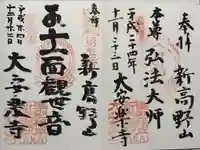 奉拝 新高野山
本尊 弘法大師
平成二十四年
十一月二十三日 大安楽寺
奉拝 新高野山
十一面観世音
平成二十四年
十一月二十三日
大安楽寺